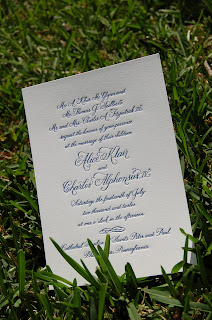 Mr. Thomas G.
Mr. and Mrs. Charles A. Fitzpatrick III
request the honour of your presence
at the marriage of their children
Alice Klair
and
Charles Alphonsus IV
Saturday, the fourteenth of July
two thousand and twelve
at one o'clock in the afternoon
Cathedral Saints Peter and Paul
Pennsylvania